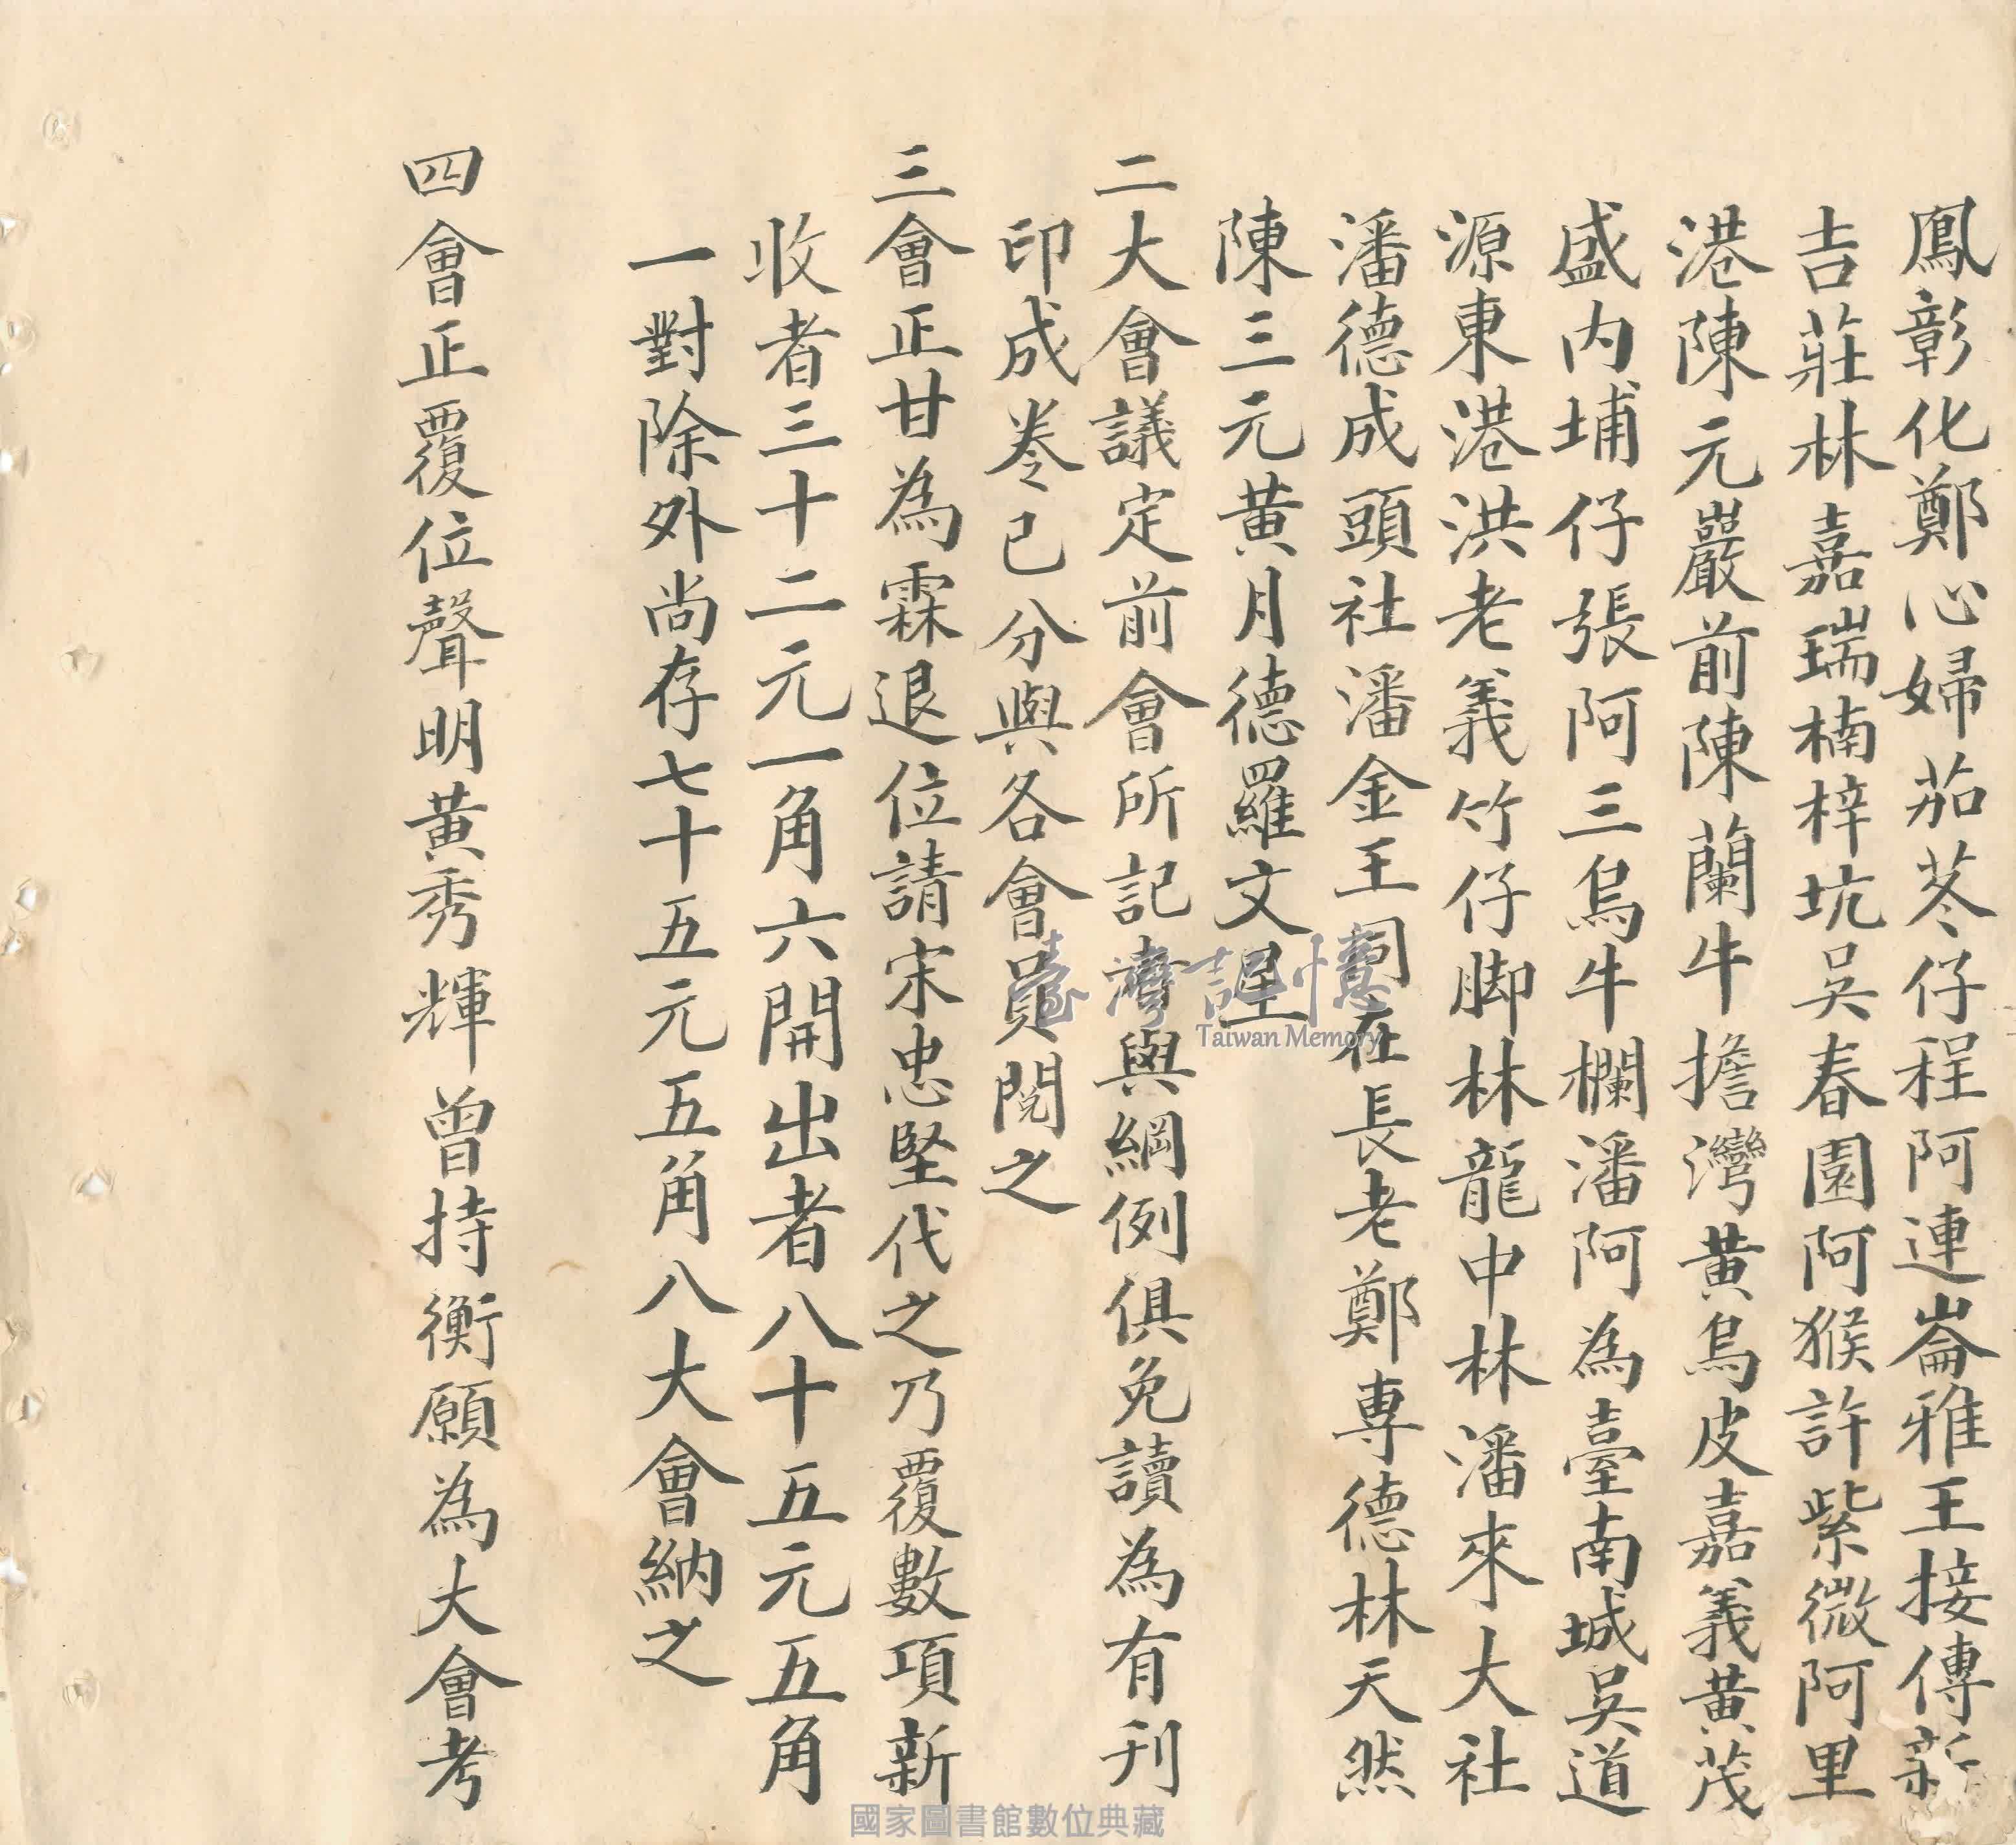 鳳彰化鄭心婦茄苳仔程阿連崙雅王接傳新
吉莊林嘉瑞楠梓坑吳春園阿猴許紫微阿里
港陳元嚴前陳蘭牛擔灣黃烏皮嘉義黃茂
盛內埔仔張阿三烏牛欄潘阿為臺南城吳道
源東港洪老義竹仔脚林龍中林潘來大社
潘德成頭社潘金王同在長老鄭專德林天然
陳三元黃月德羅文星
二大會議定前會所記事與綱例俱免讀為有刊
印成卷已分與各會員閱之
三會正甘為霖退位請宋忠堅代之乃覆數項新
收者三十二元一角六開出者八十五元五角
一對除外尚存七十五元五角八大會納之
四會正覆位聲明黃秀輝曾持衡願為大會考
臺灣記憶
Taiwan Memory
國家圖書館數位典藏